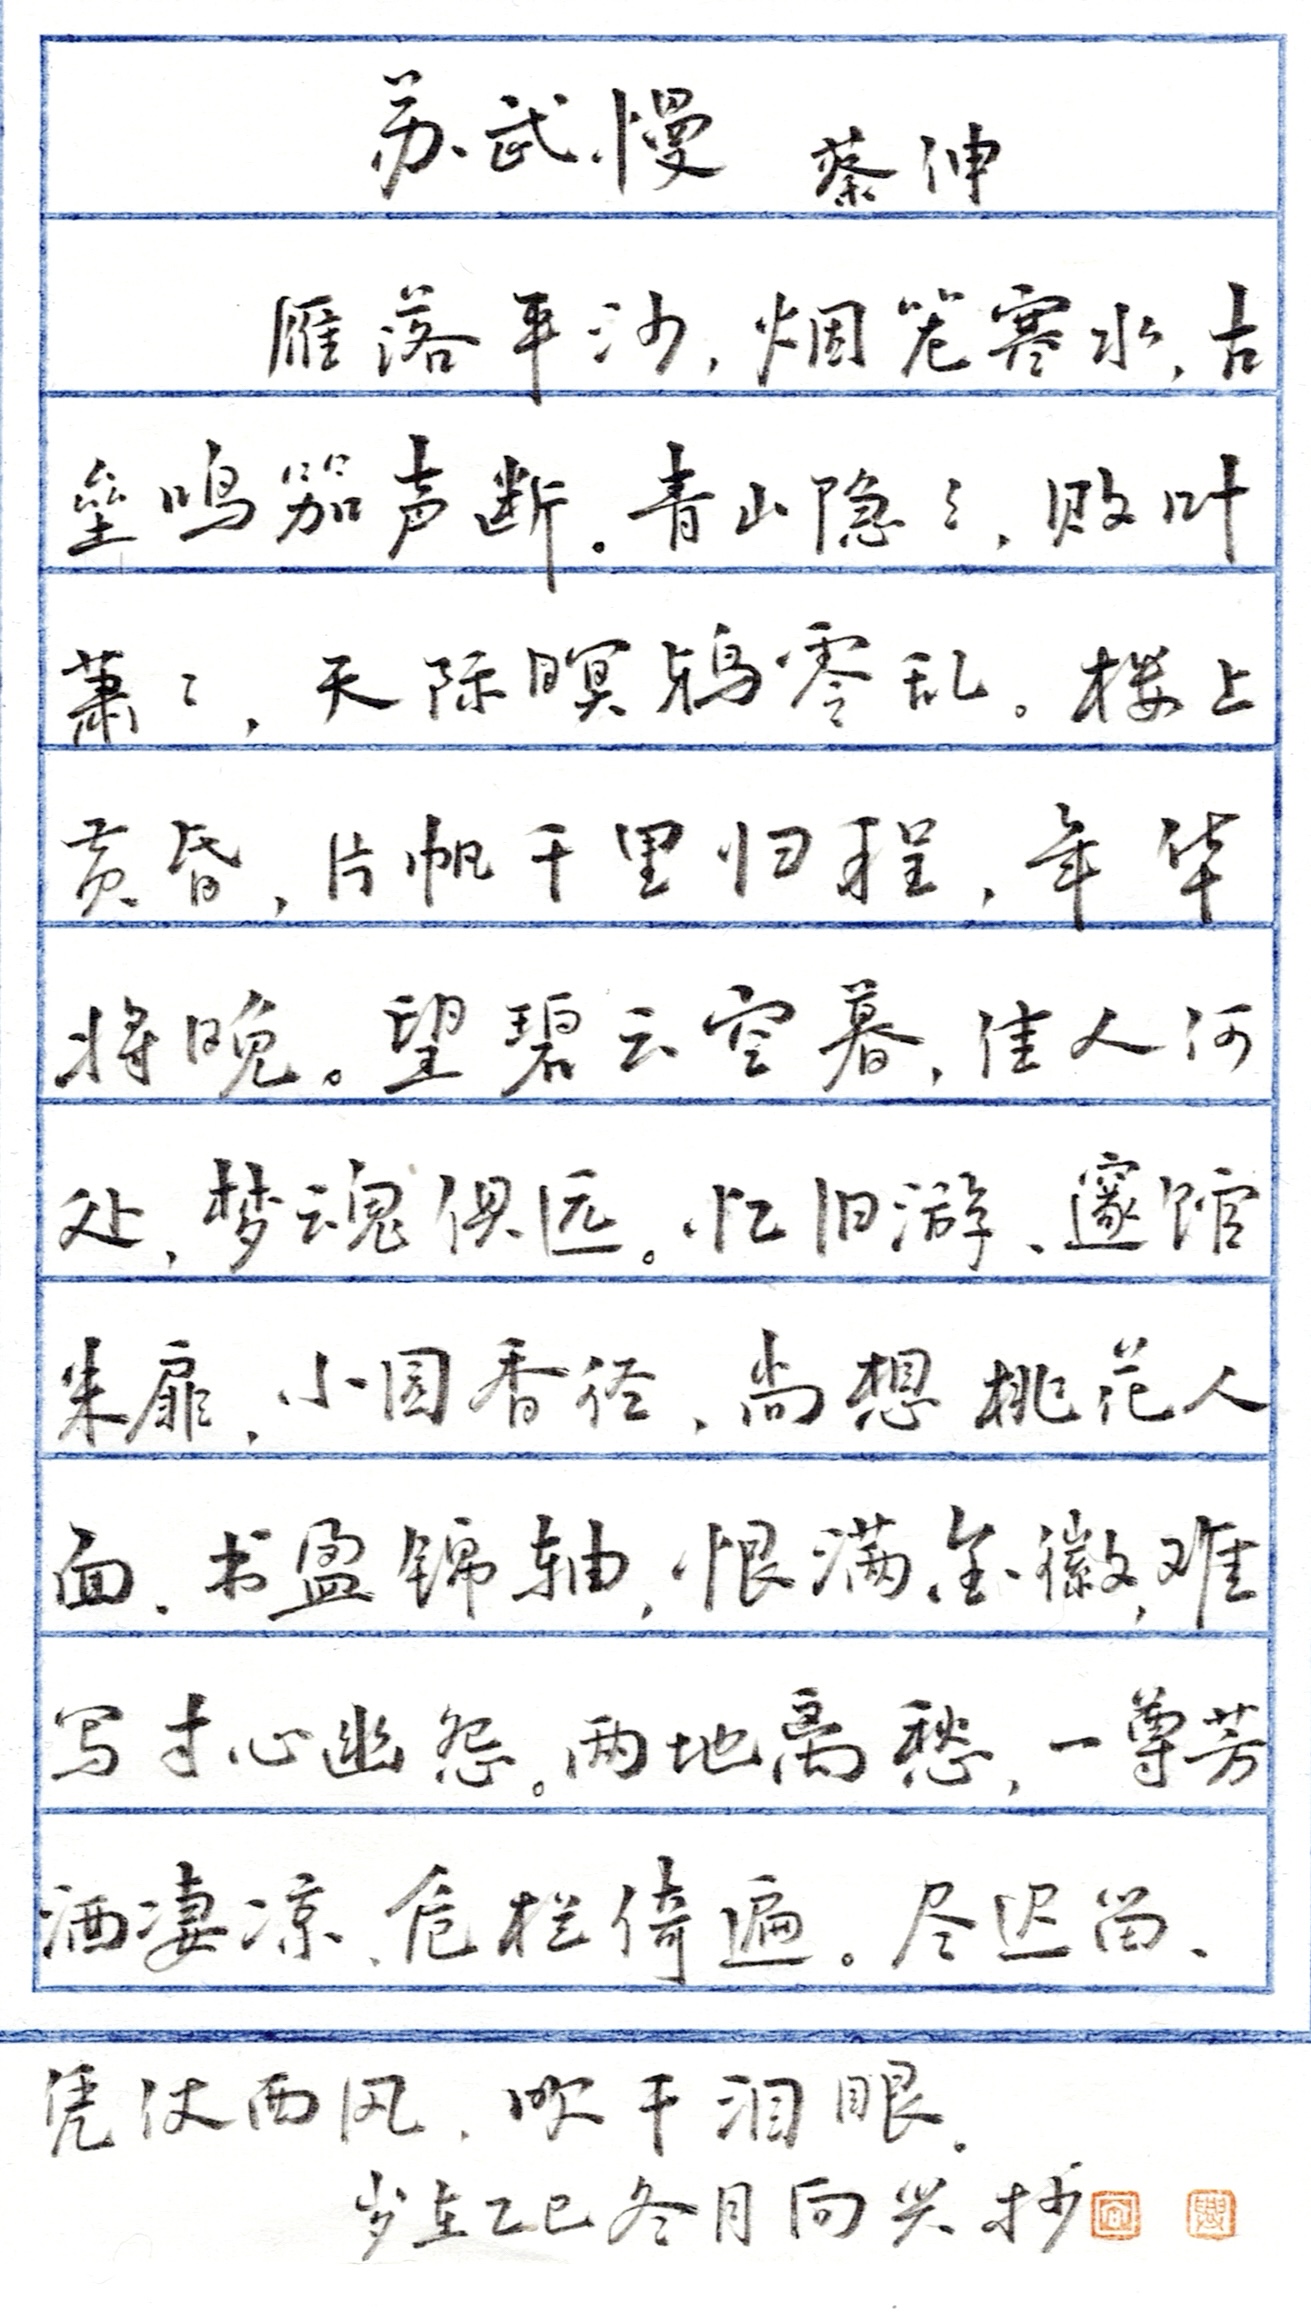 苏武慢 蔡伸
雁落平沙,烟笼寒水,古
垒鸣笳声断。青山隐々,败叶
萧々,天际暝鸦零乱。楼上
黄昏,片帆千里归程,年华
将晚。望碧云空暮,佳人何
处,梦魂俱远。忆旧游、邃馆
朱扉,小园香径,尚想桃花人
面。书盈锦轴,恨满金徽,难
写寸心幽怨。两地离愁,一尊芳
酒凄凉、危栏倚遍。尽迟留、
凭仗西风、吹干泪眼。
岁在乙巳冬月向兴抄 向 兴